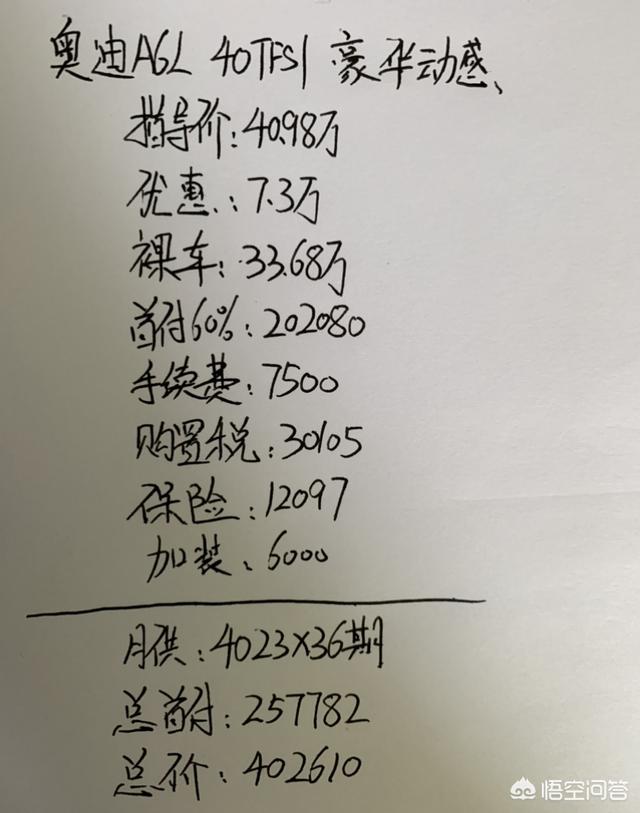 奥迪A6L 40TFSI 豪华动感、
指导价:40.98万
优惠:7.3万
裸车:33.68万
首付60%:202080
手续费:7500
购置税:30105
保险:12097
加装:6000
月供:4023×36期
总首付:257782
总价:402610
悟空问答